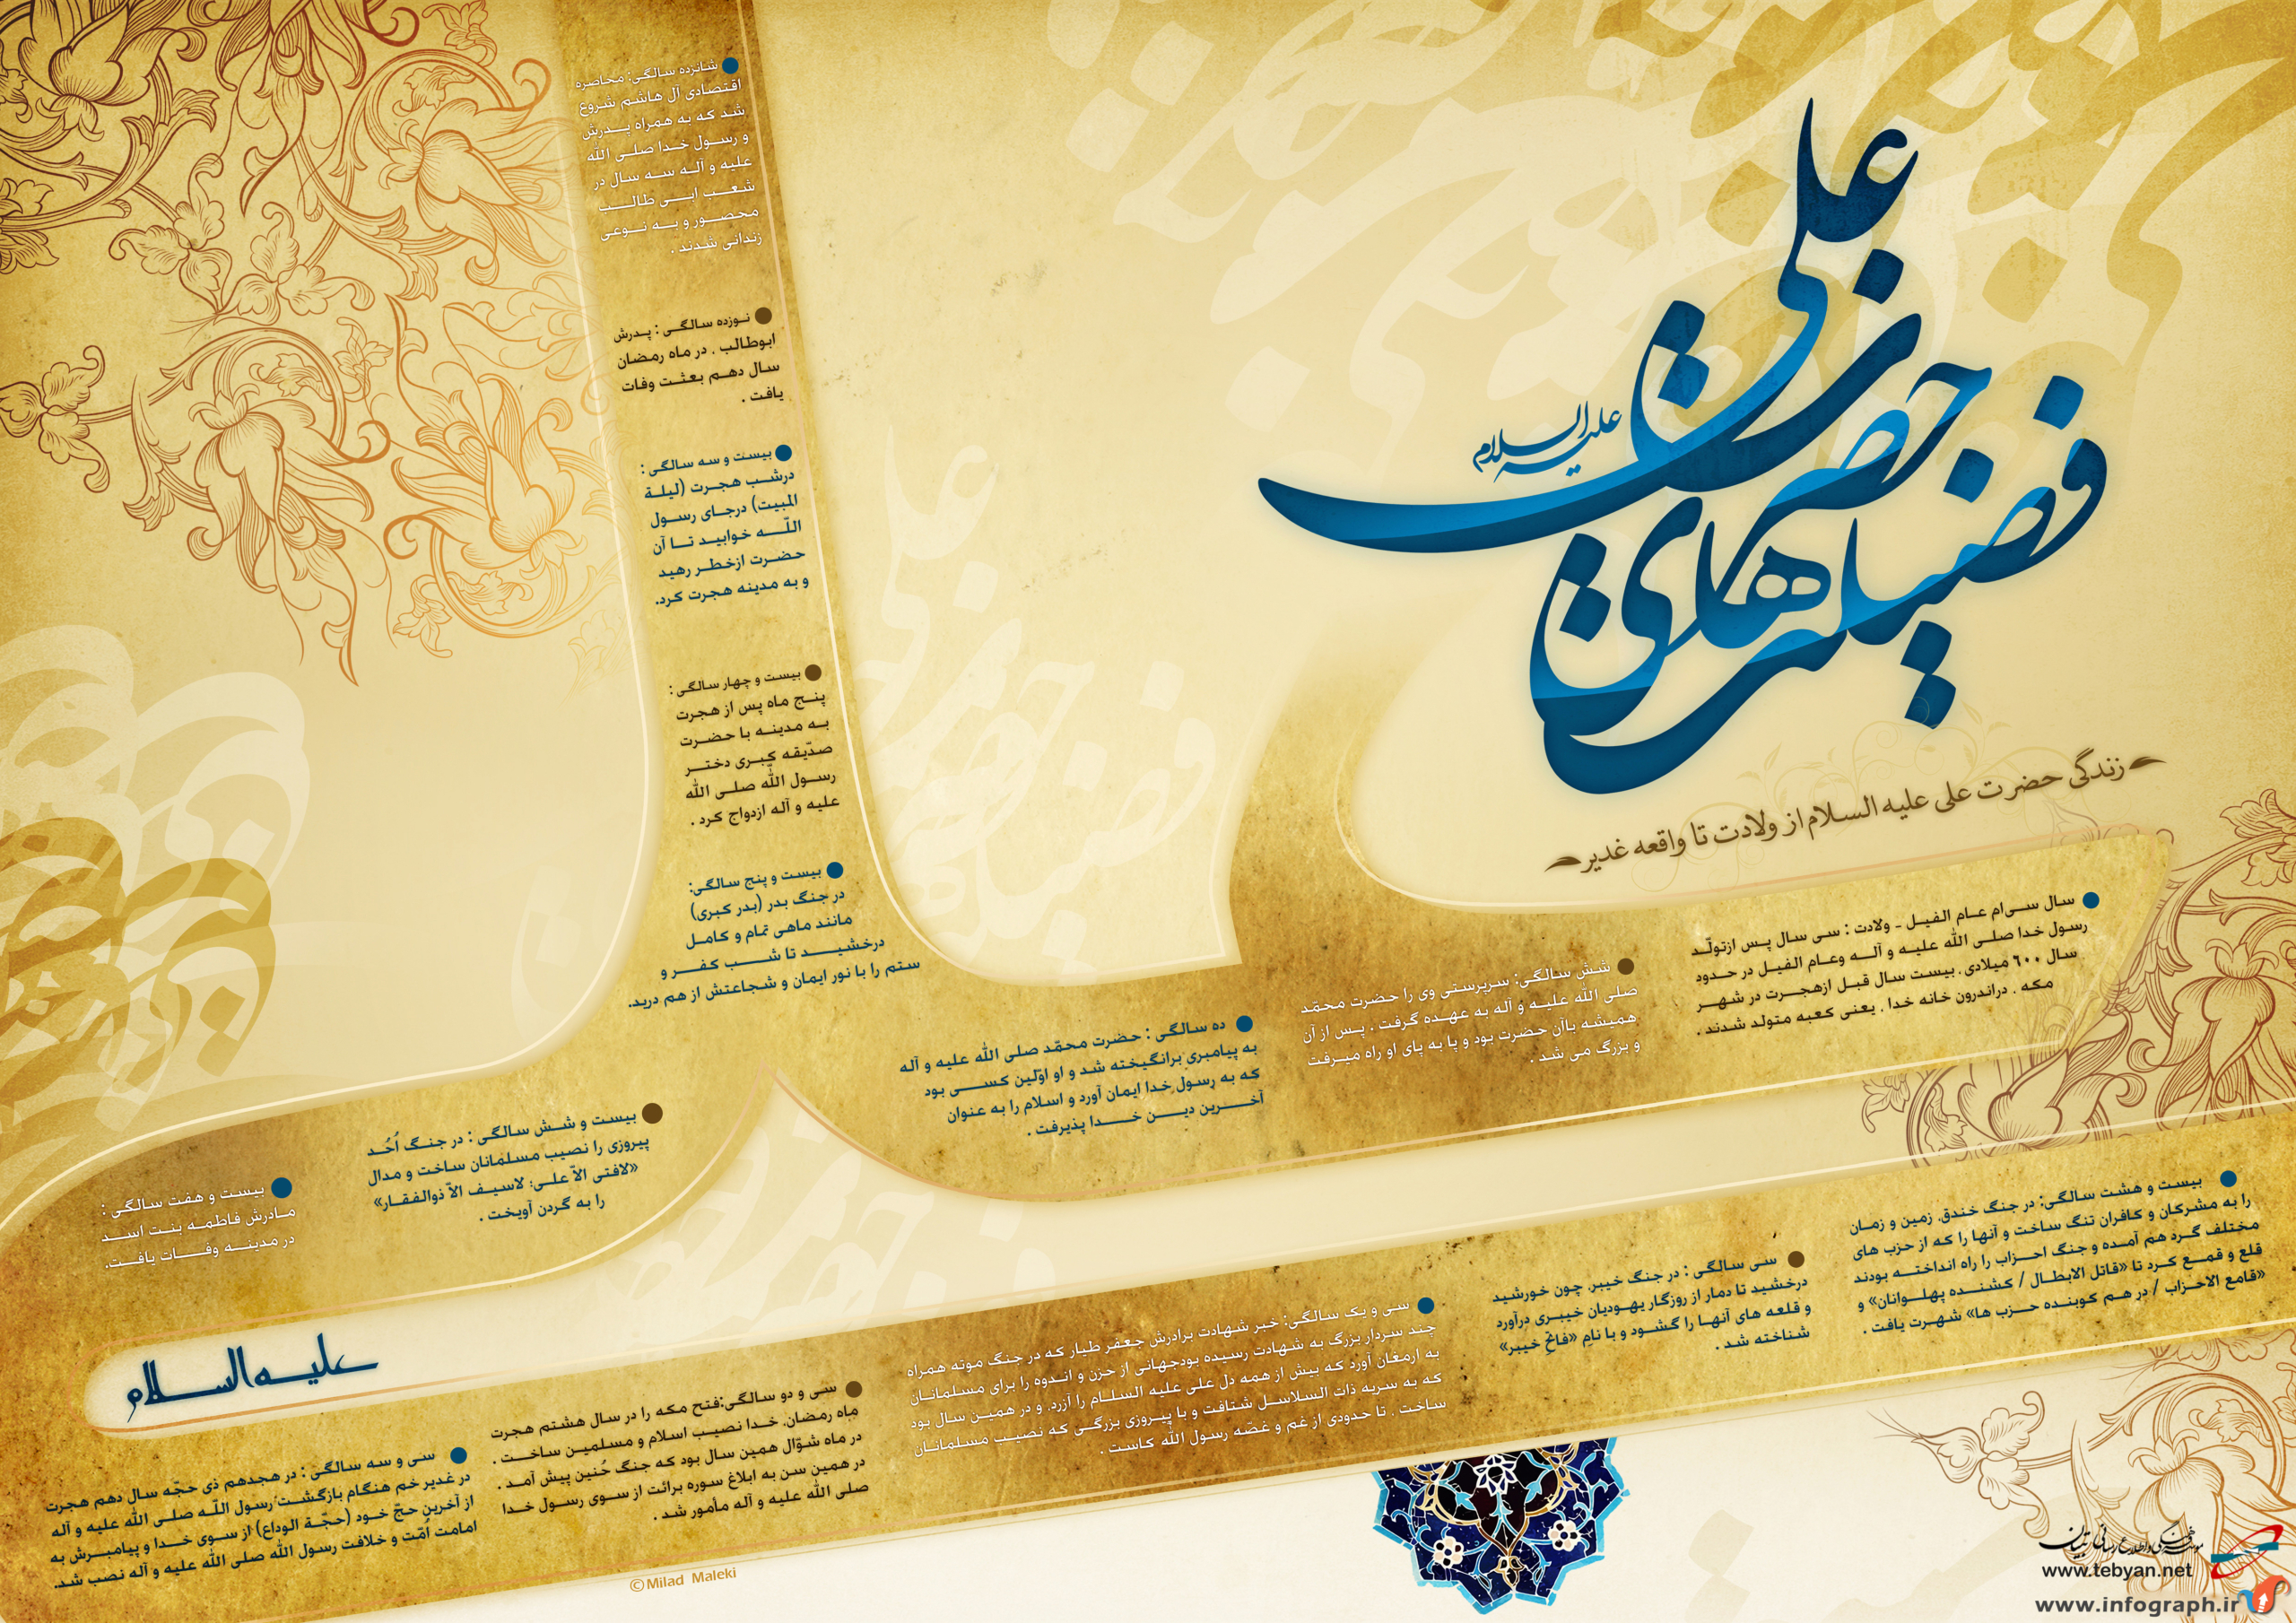 فضیلت های حضرت علی
علیه السلام
زندگی حضرت علی علیه السلام از ولادت تا واقعه غدیر
سال سی‌ام عام الفیل - ولادت : سی سال پس ازتولّد
رسول خدا صلی الله علیه و آله وعام الفیل در حدود
سال ۶۰۰ میلادی، بیست سال قبل ازهجرت در شهر
مکه ، دراندرون خانه خدا ، یعنی کعبه متولد شدند .
شش سالگی: سرپرستی وی را حضرت محمّد
صلی الله علیه و آله به عهده گرفت ، پس از آن
همیشه باآن حضرت بود و پا به پای او راه میرفت
و بزرگ می شد .
ده سالگی : حضرت محمّد صلی الله علیه و آله
به پیامبری برانگیخته شد و او اوّلین کسی بود
که به رسول خدا ایمان آورد و اسلام را به عنوان
آخرین دین خدا پذیرفت .
شانزده سالگی: محاصره
اقتصادی آل هاشم شروع
شد که به همراه پدرش
و رسول خدا صلی الله
علیه و آله سه سال در
شعب ابی طالب
محصور و به نوعی
زندانی شدند .
نوزده سالگی : پدرش
ابوطالب ، در ماه رمضان
سال دهم بعثت وفات
یافت .
بیست و سه سالگی :
درشب هجرت (لیلة
المبیت) درجای رسول
اللّه خوابید تا آن
حضرت ازخطر رهید
و به مدینه هجرت کرد.
بیست و چهار سالگی :
پنج ماه پس از هجرت
به مدینه با حضرت
صدّیقه کبری دختر
رسول اللّه صلی الله
علیه و آله ازدواج کرد .
بیست و پنج سالگی:
در جنگ بدر (بدر کبری)
مانند ماهی تمام و کامل
درخشید تا شب کفر و
ستم را با نور ایمان و شجاعتش از هم درید.
بیست و شش سالگی : در جنگ اُحُد
پیروزی را نصیب مسلمانان ساخت و مدال
«لافتی الاّ علی؛ لاسیف الاّ ذوالفقار»
را به گردن آویخت .
بیست و هفت سالگی :
مادرش فاطمه بنت اسد
در مدینه وفات یافت.
بیست و هشت سالگی: در جنگ خندق، زمین و زمان
را به مشرکان و کافران تنگ ساخت و آنها را که از حزب های
مختلف گرد هم آمده و جنگ احزاب را راه انداخته بودند
قلع و قمع کرد تا «قاتل الابطال / کشنده پهلوانان» و
«قامع الاحزاب / در هم کوبنده حزب ها» شهرت یافت .
سی سالگی : در جنگ خیبر، چون خورشید
درخشید تا دمار از روزگار یهودیان خیبری درآورد
و قلعه های آنها را گشود و با نام «فاتح خیبر»
شناخته شد .
سی و یک سالگی: خبر شهادت برادرش جعفر طیار که در جنگ موته همراه
چند سردار بزرگ به شهادت رسیده بودجهانی از حزن و اندوه را برای مسلمانان
به ارمغان آورد که بیش از همه دل علی علیه السلام را آزرد، و در همین سال بود
که به سریه ذات السلاسل شتافت و با پیروزی بزرگی که نصیب مسلمانان
ساخت ، تا حدودی از غم و غصّه رسول اللّه کاست .
سی و دو سالگی:فتح مکه را در سال هشتم هجرت
ماه رمضان، خدا نصیب اسلام و مسلمین ساخت .
در ماه شوّال همین سال بود که جنگ حُنین پیش آمد .
در همین سن به ابلاغ سوره برائت از سوی رسول خدا
صلی الله علیه و آله مأمور شد .
سی و سه سالگی : در هجدهم ذی حجّه سال دهم هجرت
در غدیر خم هنگام بازگشت رسول اللّه صلی الله علیه و آله
از آخرین حجّ خود (حجّة الوداع) از سوی خدا و پیامبرش به
امامت اُمّت و خلافت رسول اللّه صلی الله علیه و آله نصب شد.
علیه السلام
©Milad Maleki
موسسه فرهنگی و اطلاع رسانی تبیان
www.tebyan.net
www.infograph.ir